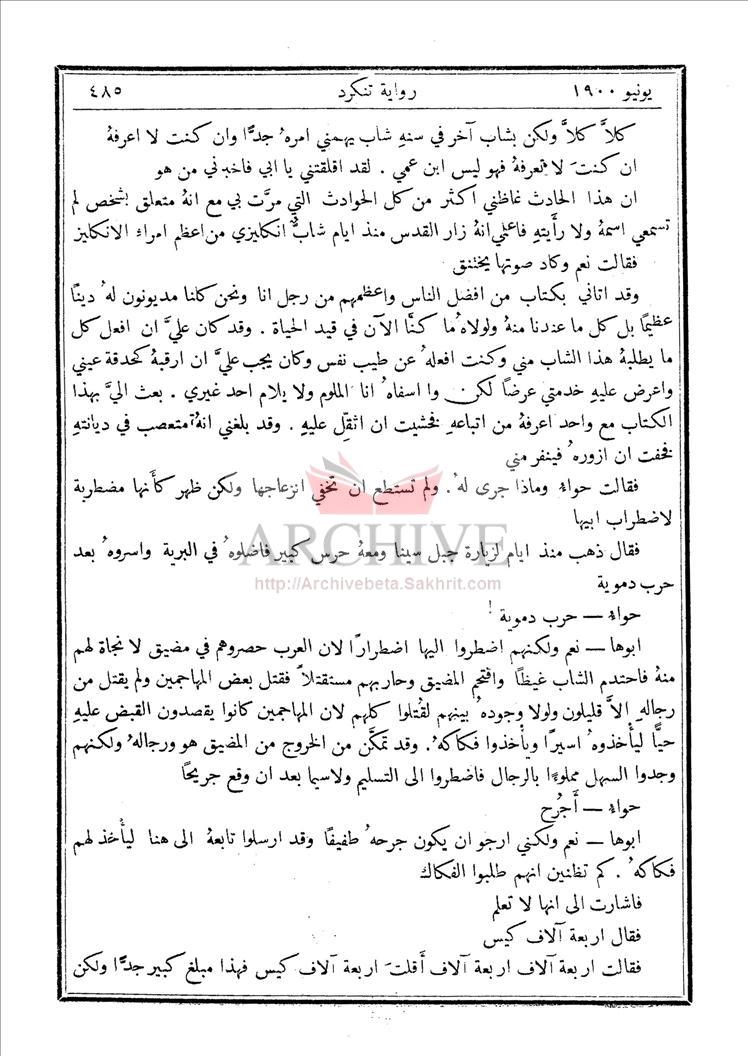 يونيو ١٩٠٠ رواية تنكرد ٤٨٥
كلاَّ كلاَّ ولكن بشاب آخر في سنهِ شاب يهمني امرهُ جدًّا وان كنت لا اعرفهُ
ان كنتَ لا تعرفهُ فهو ليس ابن عمي . لقد اقلقتني يا ابي فاخبرني من هو
ان هذا الحادث غاظني اكثر من كل الحوادث التي مرَّت بي مع انهُ متعلق بشخص لم
تسمعي اسمهُ ولا رأَيتهِ فاعلمي انهُ زار القدس منذ ايام شابٌ انكليزي من اعظم امراء الانكليز
فقالت نعم وكاد صوتها يختنق
وقد اتاني بكتاب من افضل الناس واعظمهم من رجل انا ونحن كلنا مديونون لهُ دينًا
عظيمًا بل كل ما عندنا منهُ ولولاهُ ما كنَّا الآن في قيد الحياة . وقد كان عليَّ ان افعل كل
ما يطلبهُ هذا الشاب مني وكنت افعلهُ عن طيب نفس وكان يجب عليَّ ان ارقبهُ كحدقة عيني
واعرض عليهِ خدمتي عرضًا لكن وا اسفاهُ انا الملوم ولا يلام احد غيري . بعث اليَّ بهذا
الكتاب مع واحد اعرفهُ من اتباعهِ فخشيت ان اثقِّل عليهِ . وقد بلغني انهُ متعصب في ديانتهِ
فخفت ان ازورهُ فينفر مني
فقالت حواءُ وماذا جرى لهُ . ولم تستطع ان تخفي انزعاجها ولكن ظهر كأَنها مضطربة
لاضطراب ابيها
فقال ذهب منذ ايام لزيارة جبل سينا ومعهُ حرس كبير فاضلوهُ في البرية واسروهُ بعد
حرب دموية
حواءُ — حرب دموية !
ابوها — نعم ولكنهم اضطروا اليها اضطرارًا لان العرب حصروهم في مضيق لا نجاة لهم
منهُ فاحتدم الشاب غيظًا واقتحم المضيق وحاربهم مستقتلاً فقتل بعض المهاجمين ولم يقتل من
رجالهِ الاَّ قليلون ولولا وجودهُ بينهم لقُتلوا كلهم لان المهاجمين كانوا يقصدون القبض عليهِ
حيًّا ليأْخذوهُ اسيرًا ويأْخذوا فكاكهُ . وقد تمكَّن من الخروج من المضيق هو ورجالهُ ولكنهم
وجدوا السهل مملوءًا بالرجال فاضطروا الى التسليم ولاسيما بعد ان وقع جريحًا
حواءُ — أَجُرح
ابوها — نعم ولكني ارجو ان يكون جرحهُ طفيفًا وقد ارسلوا تابعهُ الى هنا ليأْخذ لهم
فكاكهُ . كم تظنين انهم طلبوا الفكاك
فاشارت الى انها لا تعلم
فقال اربعة آلاف كيس
فقالت اربعة آلاف اربعة آلاف أَقلتَ اربعة آلاف كيس فهذا مبلغ كبير جدًّا ولكن
ARCHIVE
http://Archivebeta.Sakhrit.com